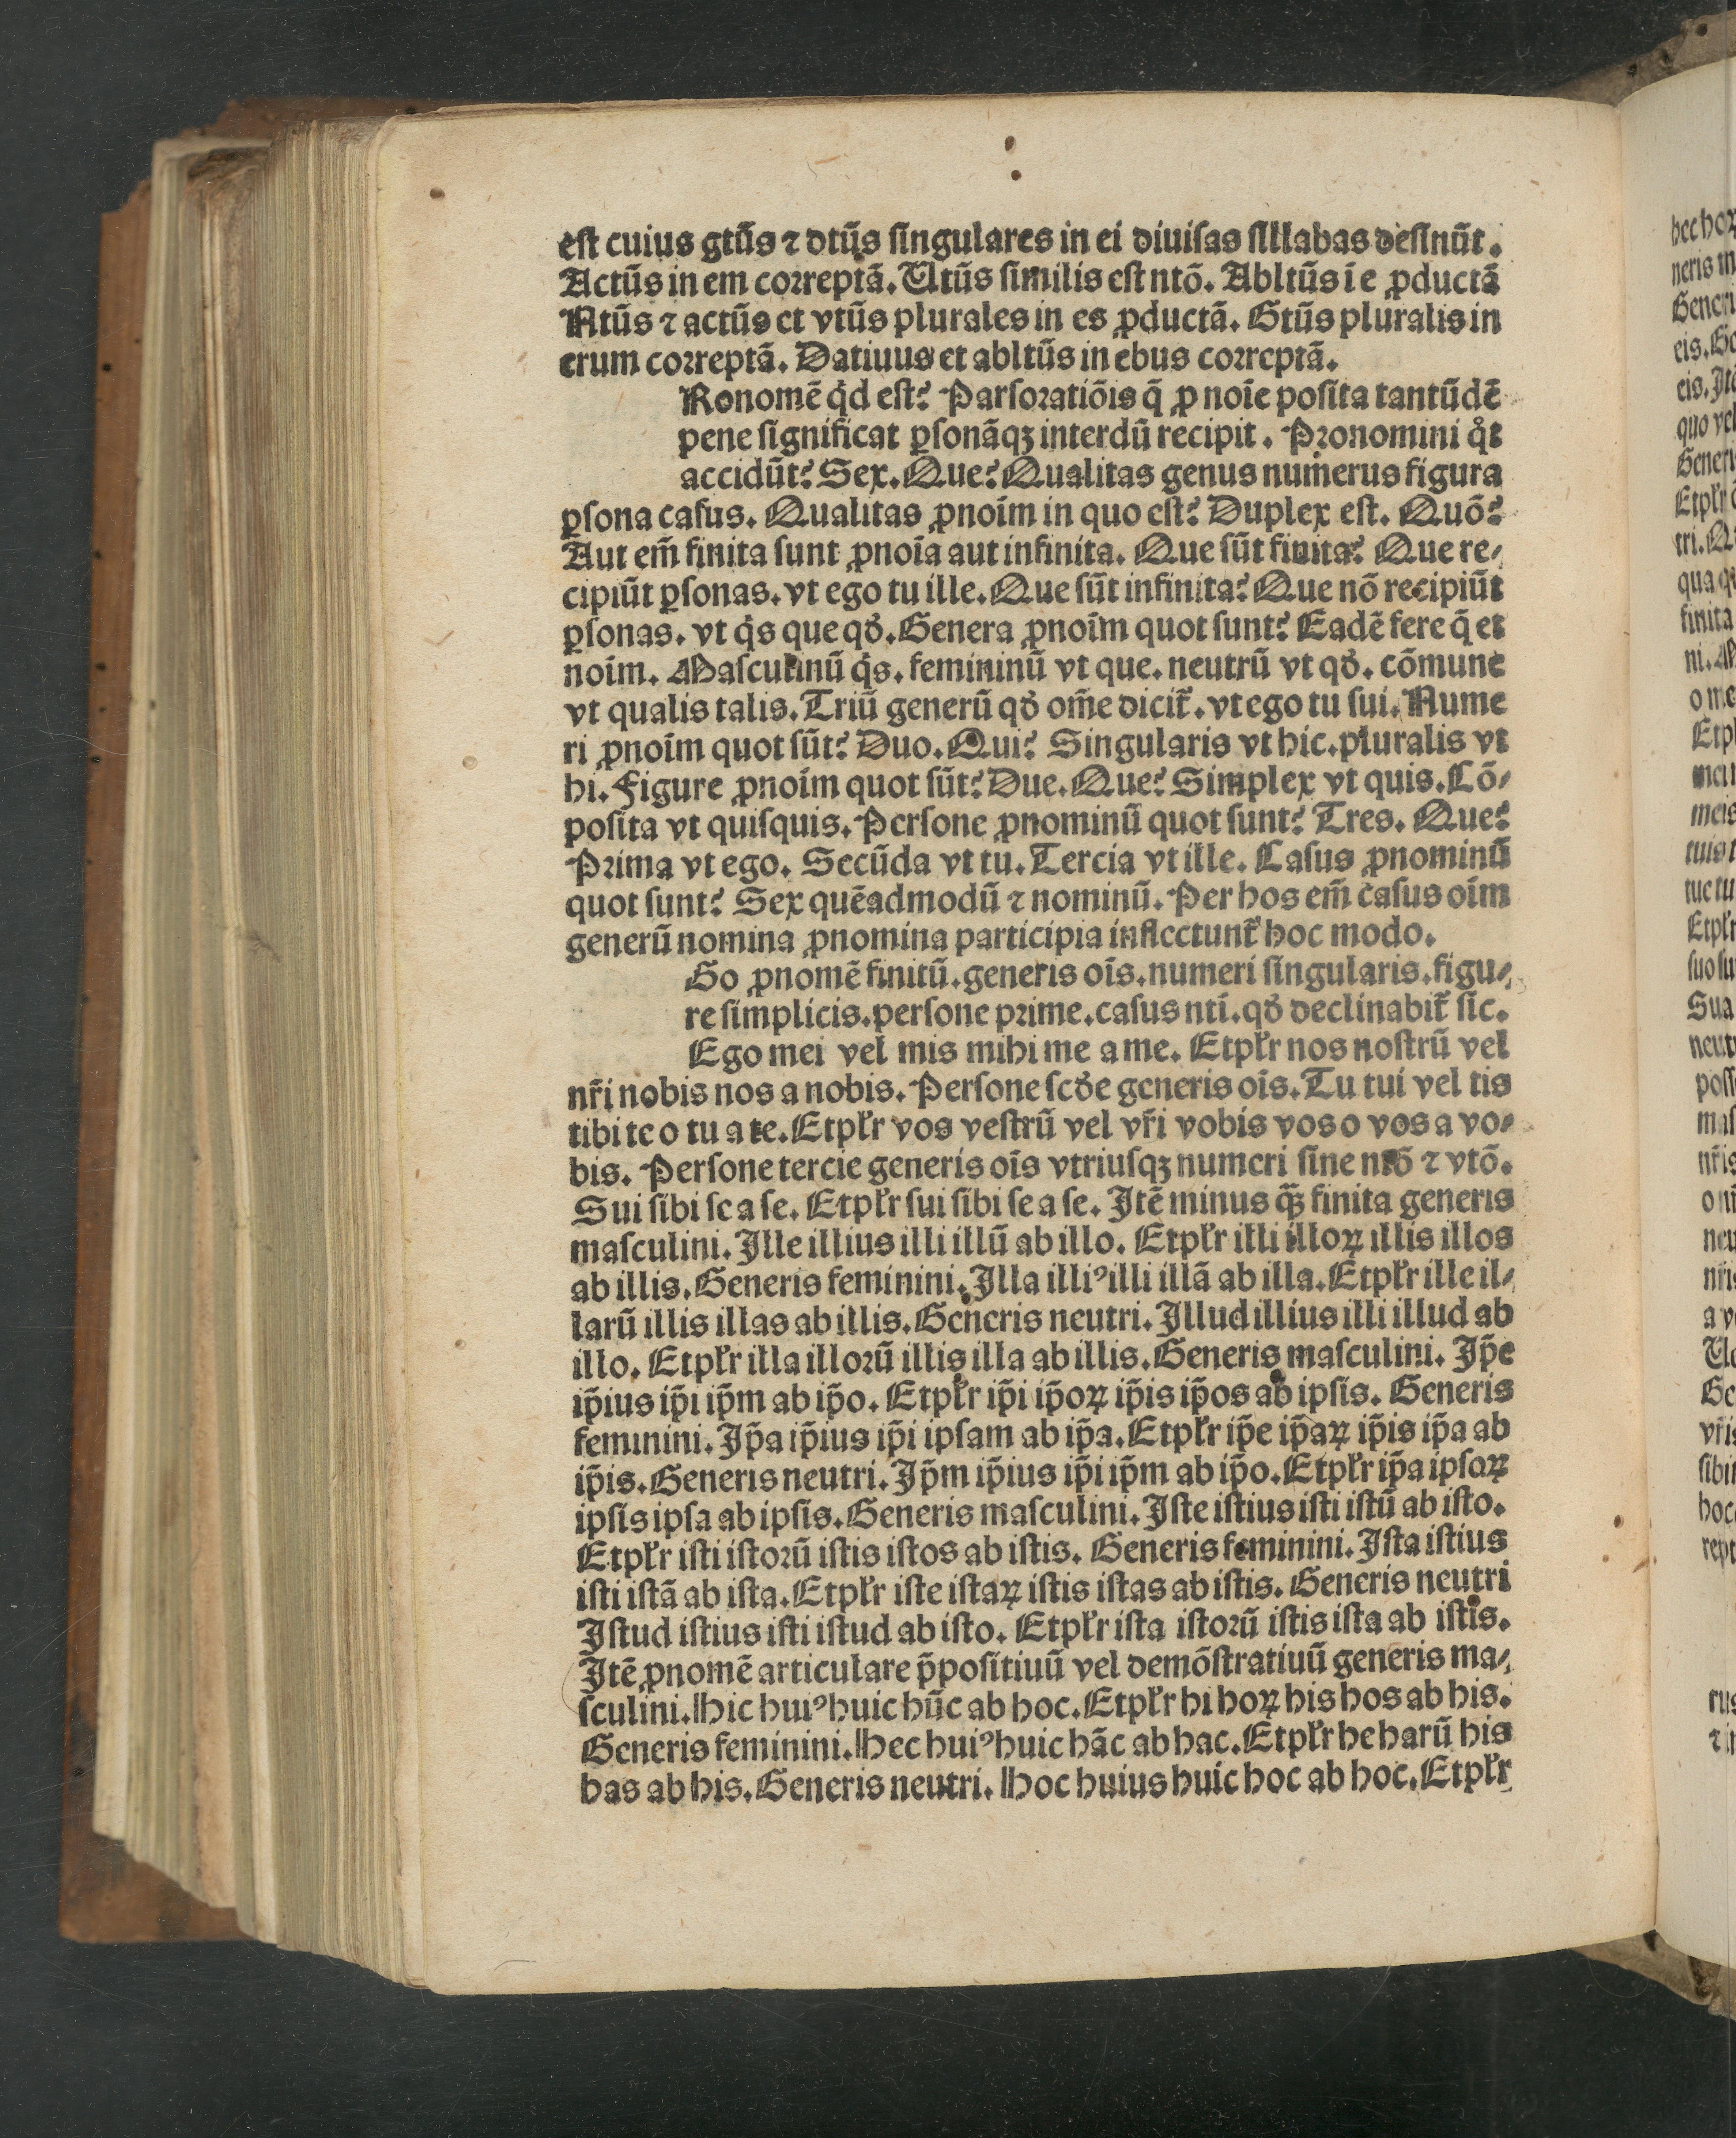 est cuius gtūs ⁊ dtūs singulares in ei diuisas sillabas desinūt.
Actūs in em correptā. Utūs similis est ntō. Abltūs ī e ꝓductā
Ntūs ⁊ actūs et vtūs plurales in es ꝓductā. Gtūs pluralis in
erum correptā. Datiuus et abltūs in ebus correptā.
Ronomē qͥd est? Pars oratiōis q̄ ꝓ noīe posita tantūdē
pene significat ꝑsonāqꝫ interdū recipit. Pronomini qͦt
accidūt? Sex. Que? Qualitas genus numerus figura
ꝑsona casus. Qualitas ꝓnoīm in quo est? Duplex est. Quō?
Aut em̄ finita sunt ꝓnoīa aut infinita. Que sūt finita? Que re⸗
cipiūt ꝑsonas. vt ego tu ille. Que sūt infinita? Que nō recipiūt
ꝑsonas. vt qͥs que qđ. Genera ꝓnoīm quot sunt? Eadē fere q̄ et
noīm. Masculinū qͥs. femininū vt que. neutrū vt qđ. cōmune
vt qualis talis. Triū generū qđ om̄e dicit̄. vt ego tu sui. Nume
ri ꝓnoīm quot sūt? Duo. Qui? Singularis vt hic. pluralis vt
hi. Figure ꝓnoīm quot sūt? Due. Que? Simplex vt quis. Cō⸗
posita vt quisquis. Persone ꝓnominū quot sunt? Tres. Que?
Prima vt ego. Secūda vt tu. Tercia vt ille. Casus ꝓnominū
quot sunt? Sex quēadmodū ⁊ nominū. Per hos em̄ casus oīm
generū nomina ꝓnomina participia inflectunt̄ hoc modo.
Go ꝓnomē finitū. generis oīs. numeri singularis. figu⸗
re simplicis. persone prime. casus ntī. qđ declinabit̄ sic.
Ego mei vel mis mihi me a me. Et pl̄r nos nostrū vel
nr̄i nobis nos a nobis. Persone scđe generis oīs. Tu tui vel tis
tibi te o tu a te. Et pl̄r vos vestrū vel vr̄i vobis vos o vos a vo⸗
bis. Persone tercie generis oīs vtriusqꝫ numeri sine ntō ⁊ vtō.
Sui sibi se a se. Et pl̄r sui sibi se a se. Itē minus q̄ꝫ finita generis
masculini. Ille illius illi illū ab illo. Et pl̄r illi illoꝝ illis illos
ab illis. Generis feminini. Illa illiꝰ illi illā ab illa. Et pl̄r ille il⸗
larū illis illas ab illis. Generis neutri. Illud illius illi illud ab
illo. Et pl̄r illa illorū illis illa ab illis. Generis masculini. Ip̄e
ip̄ius ip̄i ip̄m ab ip̄o. Et pl̄r ip̄i ip̄oꝝ ip̄is ip̄os ab ipsis. Generis
feminini. Ip̄a ip̄ius ip̄i ipsam ab ip̄a. Et pl̄r ip̄e ip̄aꝝ ip̄is ip̄a ab
ip̄is. Generis neutri. Ip̄m ip̄ius ip̄i ip̄m ab ip̄o. Et pl̄r ip̄a ipsoꝝ
ipsis ipsa ab ipsis. Generis masculini. Iste istius isti istū ab isto.
Et pl̄r isti istorū istis istos ab istis. Generis feminini. Ista istius
isti istā ab ista. Et pl̄r iste istaꝝ istis istas ab istis. Generis neutri
Istud istius isti istud ab isto. Et pl̄r ista istorū istis ista ab istis.
Itē ꝓnomē articulare p̄positiuū vel demōstratiuū generis ma⸗
sculini. Hic huiꝰ huic hūc ab hoc. Et pl̄r hi hoꝝ his hos ab his.
Generis feminini. Hec huiꝰ huic hāc ab hac. Et pl̄r he harū his
has ab his. Generis neutri. Hoc huius huic hoc ab hoc. Et pl̄r